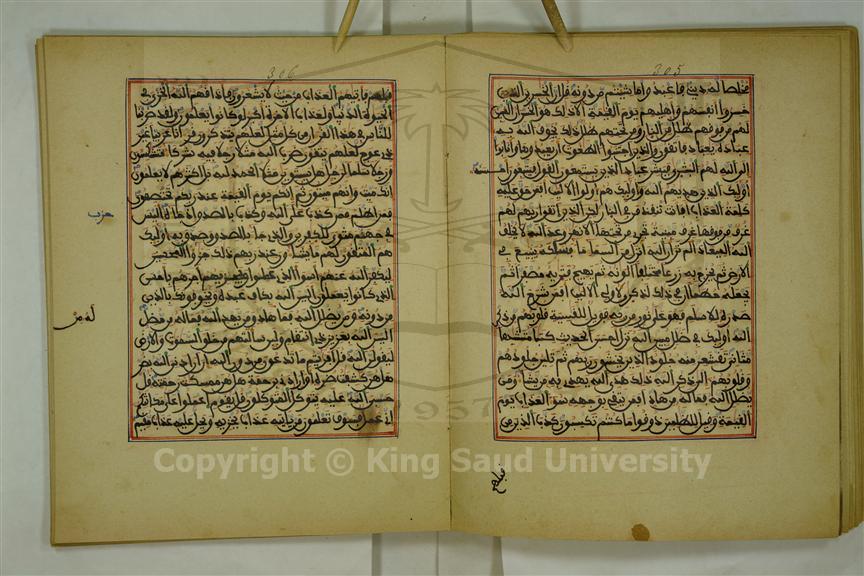 305
مخلصا له ديني فاعبدوا ما شئتم من دونه قل ان الخسرين الذين
خسروا انفسهم واهليهم يوم القيمة الا ذلك هو الخسران المبين
لهم من فوقهم ظلل من النار ومن تحتهم ظلل ذلك يخوف الله به
عباده يعباد فاتقون والذين اجتنبوا الطغوت ان يعبدوها وانابوا
الى الله لهم البشرى فبشر عباد الذين يستمعون القول فيتبعون احسنه
اوليك الذين هديهم الله واوليك هم اولوا الالبب افمن حق عليه
كلمة العذاب افانت تنقذ من في النار لكن الذين اتقوا ربهم لهم
غرف من فوقها غرف مبنية تجري من تحتها الانهر وعد الله لا يخلف
الله الميعاد الم تر ان الله انزل من السما ما فسلكه ينبيع في
الارض ثم يخرج به زرعا مختلفا الونه ثم يهيج فتريه مصفرا ثم
يجعله حطما ان في ذلك لذكرى لاولي الالبب افمن شرح الله
صدره للاسلم فهو على نور من ربه فويل للقسية قلوبهم من ذكر
الله اوليك في ضلل مبين الله نزل احسن الحديث كتبا متشبها
مثاني تقشعر منه جلود الذين يخشون ربهم ثم تلين جلودهم
وقلوبهم الى ذكر الله ذلك هدى الله يهدي به من يشا ومن
يضلل الله فما له من هاد افمن يتقي بوجهه سو العذاب يوم
القيمة وقيل للظلمين ذوقوا ما كنتم تكسبون كذب الذين من
قبلهم
306
قبلهم فاتيهم العذاب من حيث لا يشعرون فاذاقهم الله الخزي في
الحيوة الدنيا ولعذاب الاخرة اكبر لو كانوا يعلمون ولقد ضربنا
للناس في هذا القران من كل مثل لعلهم يتذكرون قرانا عربيا غير
ذي عوج لعلهم يتقون ضرب الله مثلا رجلا فيه شركا متشكسون
ورجلا سلما لرجل هل يستوين مثلا الحمد لله بل اكثرهم لا يعلمون
انك ميت وانهم ميتون ثم انكم يوم القيمة عند ربكم تختصمون
فمن اظلم ممن كذب على الله وكذب بالصدق اذ جاه اليس
في جهنم مثوى للكفرين والذي جا بالصدق وصدق به اوليك
هم المتقون لهم ما يشاون عند ربهم ذلك جزوا المحسنين
ليكفر الله عنهم اسوا الذي عملوا ويجزيهم اجرهم باحسن
الذي كانوا يعملون اليس الله بكاف عبده ويخوفونك بالذين
من دونه ومن يضلل الله فما له من هاد ومن يهد الله فما له من مضل
اليس الله بعزيز ذي انتقام ولين سالتهم من خلق السموت والارض
ليقولن الله قل افريتم ما تدعون من دون الله ان ارادني الله بضر
هل هن كشفت ضره او ارادني برحمة هل هن ممسكت رحمته قل
حسبي الله عليه يتوكل المتوكلون قل يقوم اعملوا على مكانتكم
اني عمل فسوف تعلمون من ياتيه عذاب يخزيه ويحل عليه عذاب مقيم
حزب
Copyright © King Saud University
1957